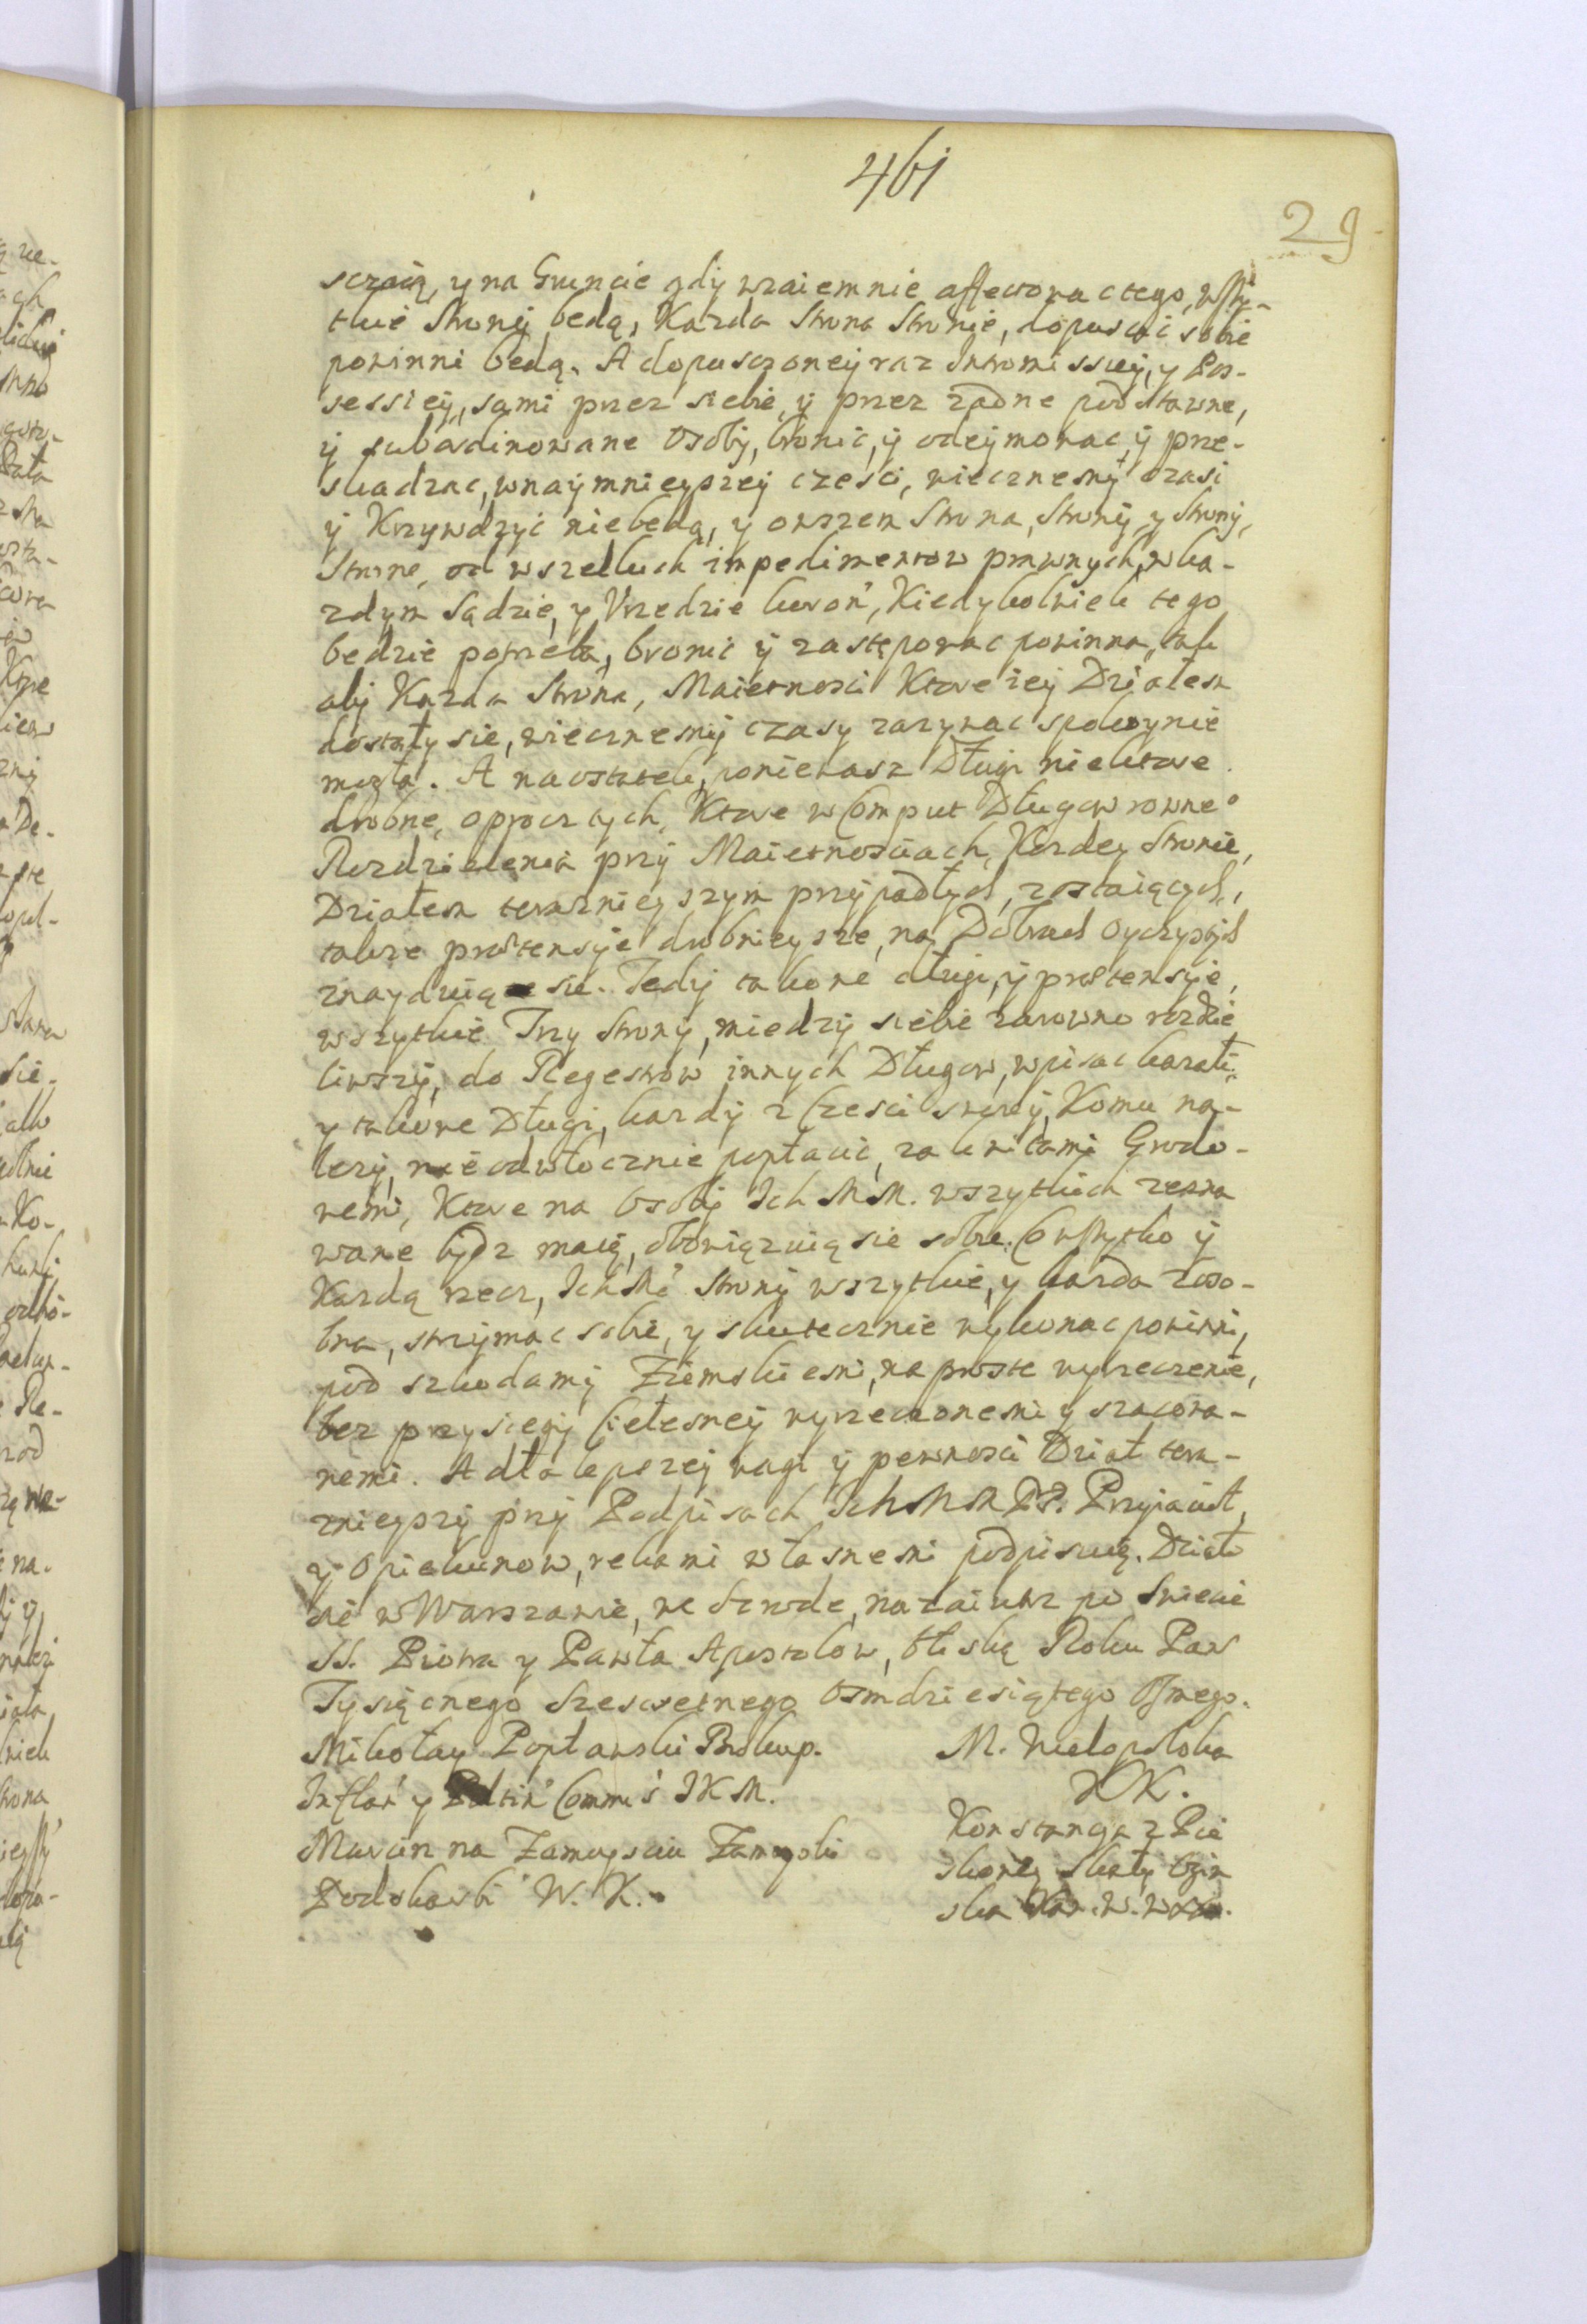 461
29
sczaią, y na Gruncie gdÿ wzaiemnie affectowac tego, wszÿ-
tkie Stronÿ będą, Kazda Strona Stronie, dopuscic sobie
powinni będą. A dopusczoneÿ raz Intromissieÿ, y Pos-
sessieÿ, sami przez siebie, ÿ przez zadne podstawne,
ÿ subordinowane Osobÿ, bronic, ÿ odeÿmowac, ÿ prze-
skadzac, wnaÿmnieyszeÿ czesci, wiecznemÿ czasi
ÿ Krzywdzÿc niebędą, y owszem Strona, Stronÿ, y Stronÿ,
Stronę, od wszelkich impedimentow prawnych, w ka-
zdym Sądzie, y Vrzedzie koron', Kiedykolwiek tego
bedzie potrzeba, bronic ÿ zastępowac powinna, tak
abÿ Kazda Strona, Maietnosci Ktore ieÿ Działem
dostały sie, wiecznemÿ czasy zazywac spokoynie
mogła. A na ostatek, poniewasz Długi niektore
drobne, oprocz tych, Ktore w Comput Długow rowne°
Rozdzielenia przÿ Maietnosciach, Kozdey Stronie,
Działem teraznieyszym przÿpadłych, zostaiących,
takze prætensÿe drobnieysze, na Dobrach Oyczystÿch
znayduią sie. Tedÿ takowe długi, ÿ prætensÿe,
wszytkie Trzy Stronÿ, miedzÿ siebie zarowno rozdzie
liwszÿ, do Regestrow innych Długow, wpisac kazali,
y takowe Długi, kazdÿ z Czesci swoieÿ, Komu na-
lezÿ, nieodwłocznie popłacic, za kwitami Grodo-
wemi, Ktore na Osobÿ Ich MM. wszytkich zezna
wane bydz maią, obowiązuią sie sobie. Co wszytko ÿ
Kazdą rzecz, Ich Mc Stronÿ wszytkie, y kazda zoso-
bna, strzymac sobie, y skutecznie wykonac powinni,
pod szkodamÿ Ziemskiemi, na proste wyrzeczenie,
bez przysięgÿ Cielesneÿ wyrzeczonemi y szacowa-
nemi. A dla lepszeÿ wagi ÿ pewnosci Dział tera-
znieyszÿ przÿ Podpisach Ich MM PP. Przyiacioł,
ÿ Opiekunow, rekami własnemi podpisuią. Działo
sie w Warszawie, we Srzode, nazaiutrz po Swiecie
SS. Piotra y Pawła Apostolow, Roku Pan
Tysiącnego Szescsetnego Osmdziesiątego Osmego.
Mikołay Popławski Biskup.
Inflan' y Piltin' Commis JKM.
Marcin na Zamoysciu Zamoyski
Podskarb' W. K.
M. Wielopolska
KK.
Konstancya z Pie
skoweÿ Skałÿ
ska Kan. W.